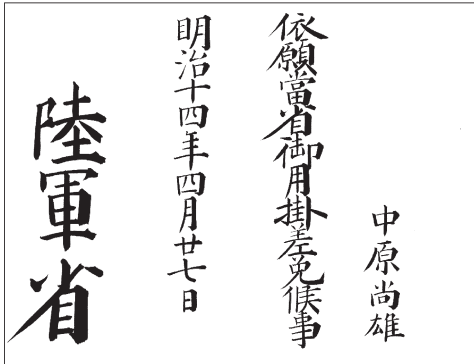 中原尚雄
依願當省御用掛差免候事
明治十四年四月廿七日
陸軍省